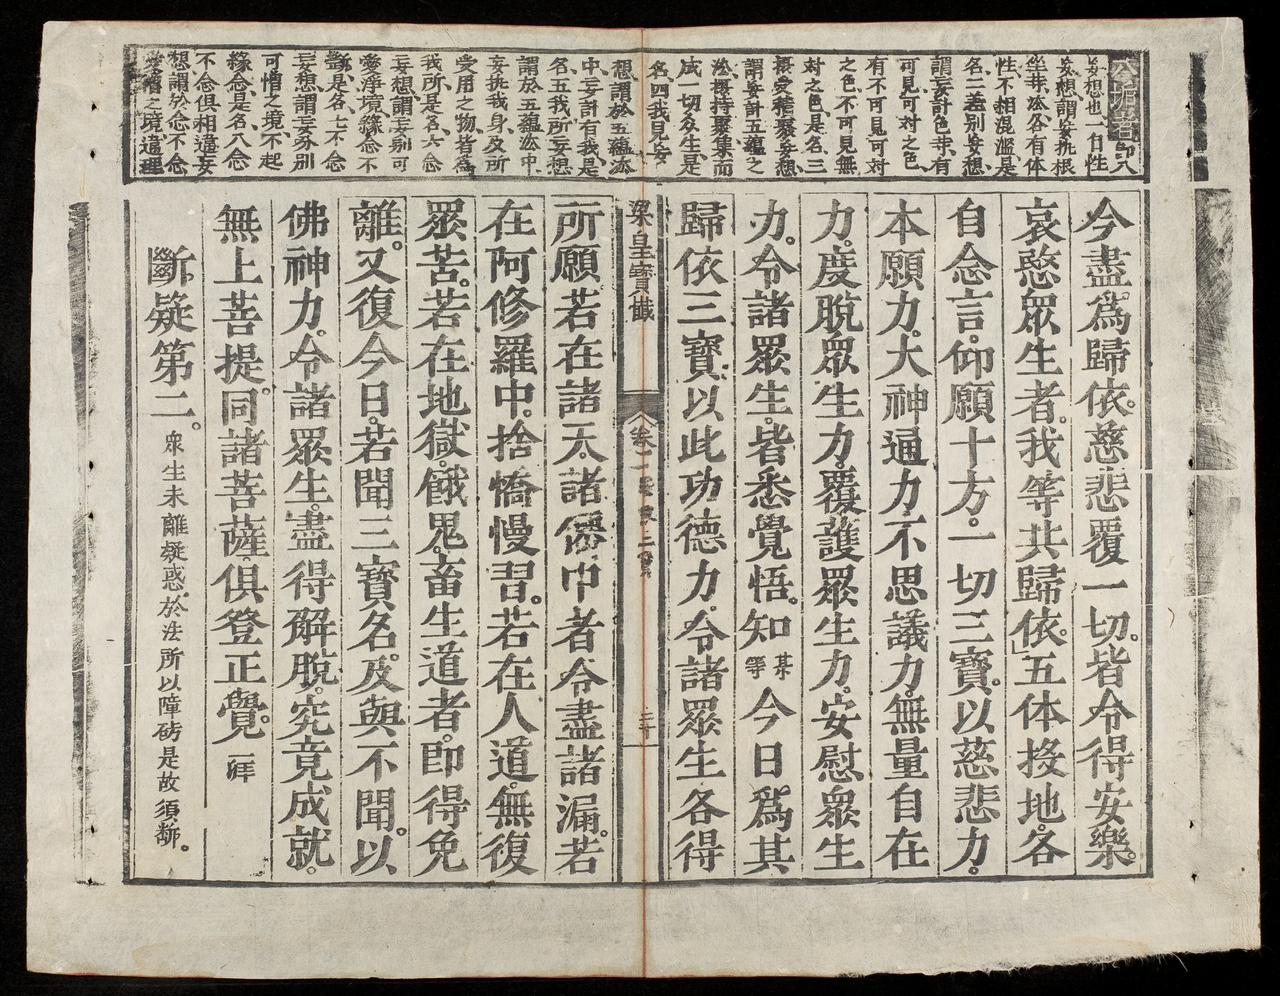 妄想也一自性
妄想謂妄執根
塵等法各有体
性不相混濫是
名二差別妄想
謂妄計色等有
可見可対之色
有不可見可対
之色不可見無
対之色是名三
攝受積聚妄想
謂妄計五蘊之
法攝持聚集而
成一切众生是
名四我見妄
想謂於五蘊法
中妄計有我是
名五我所妄想
謂於五蘊法中
妄执我身及所
受用之物皆為
我所是名六念
妄想謂妄分别可
愛淨境緣念不
斷是名七不念
妄想謂妄分别
可憎之境不起
緣念是名八念
不念俱相違妄
想謂於念不念
愛憎之境違理
今盡爲歸依慈悲覆一切皆令得安樂
哀愍眾生者我等共歸依五体投地各
自念言仰願十方一切三寶以慈悲力
本願力大神通力不思議力無量自在
力度脫眾生力覆護眾生力安慰眾生
力令諸眾生皆悉覺悟知某等今日爲其
歸依三寶以此功德力令諸眾生各得
梁皇寶懺
卷一
二十
所願若在諸天諸僊中者令盡諸漏若
在阿修羅中捨憍慢習若在人道無復
眾苦若在地獄餓鬼畜生道者即得免
離又復今日若聞三寶名及與不聞以
佛神力令諸眾生盡得解脫究竟成就
無上菩提同諸菩薩俱登正覺一拜
斷疑第二。衆生未離癡惑於法所以障礙是故須斷。